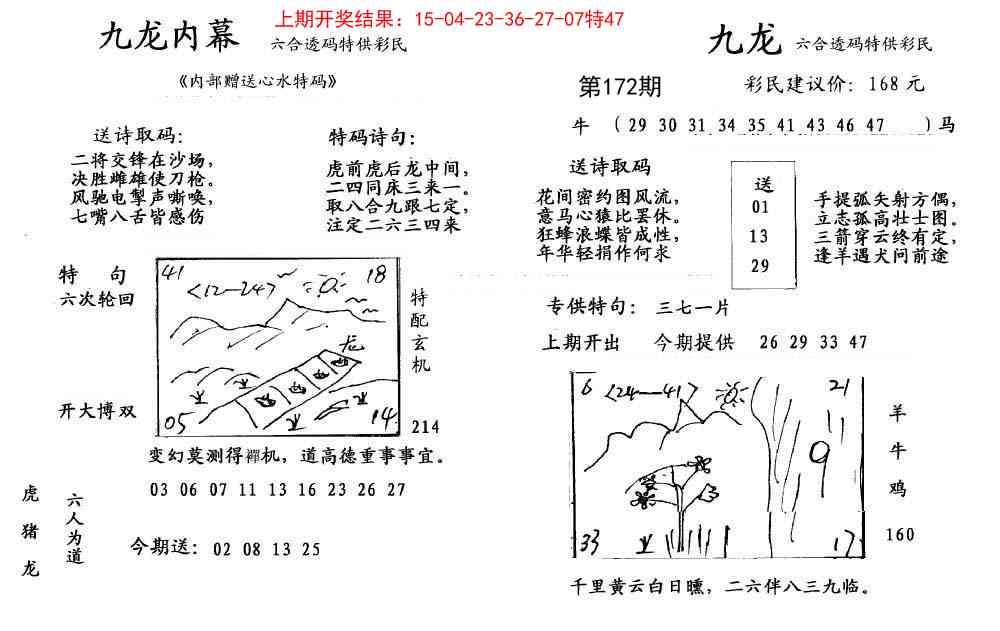 上期开奖结果：15-04-23-36-27-07特47
九龙内幕 六合透码特供彩民
《内部赠送心水特码》
送诗取码：
二将交锋在沙场，
决胜雌雄使刀枪。
风驰电掣声嘶唤，
七嘴八舌皆感伤
特码诗句：
虎前虎后龙中间，
二四同床三来一。
取八合九跟七定，
注定二六三四来
特 句
六次轮回
开大博双
41 18
<12—24>
龙
05 14
特配玄机
214
变幻莫测得禪机，道高德重事事宜。
03 06 07 11 13 16 23 26 27
虎猪龙
六人为道
今期送：02 08 13 25
九龙 六合透码特供彩民
第172期 彩民建议价：168元
牛 （29 30 31 34 35 41 43 46 47 ）马
送诗取码
花间密约图风流，
意马心猿比罢休。
狂蜂浪蝶皆成性，
年华轻捐作何求
送
01
13
29
手提弧矢射方偶，
立志孤高壮士图。
三箭穿云终有定，
逢羊遇犬问前途
专供特句： 三七一片
上期开出 今期提供 26 29 33 47
6 <24—41> 21
9
33 17
羊
牛
鸡
160
千里黄云白日曛，二六伴八三九临。